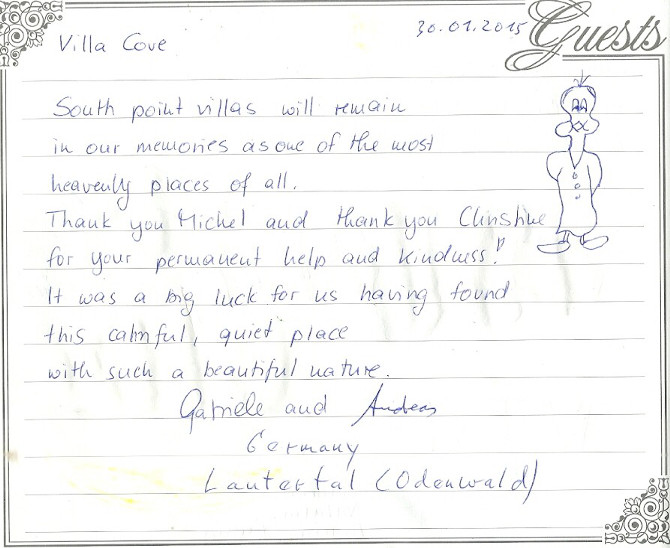 30.01.2015 Guests
Villa Cove
South point villas will remain
in our memories as one of the most
heavenly places of all.
Thank you Michel and thank you Christine
for your permanent help and kindness!
It was a big luck for us having found
this calmful, quiet place
with such a beautiful nature.
Gabriele and Andreas
Germany
Lautertal (Odenwald)